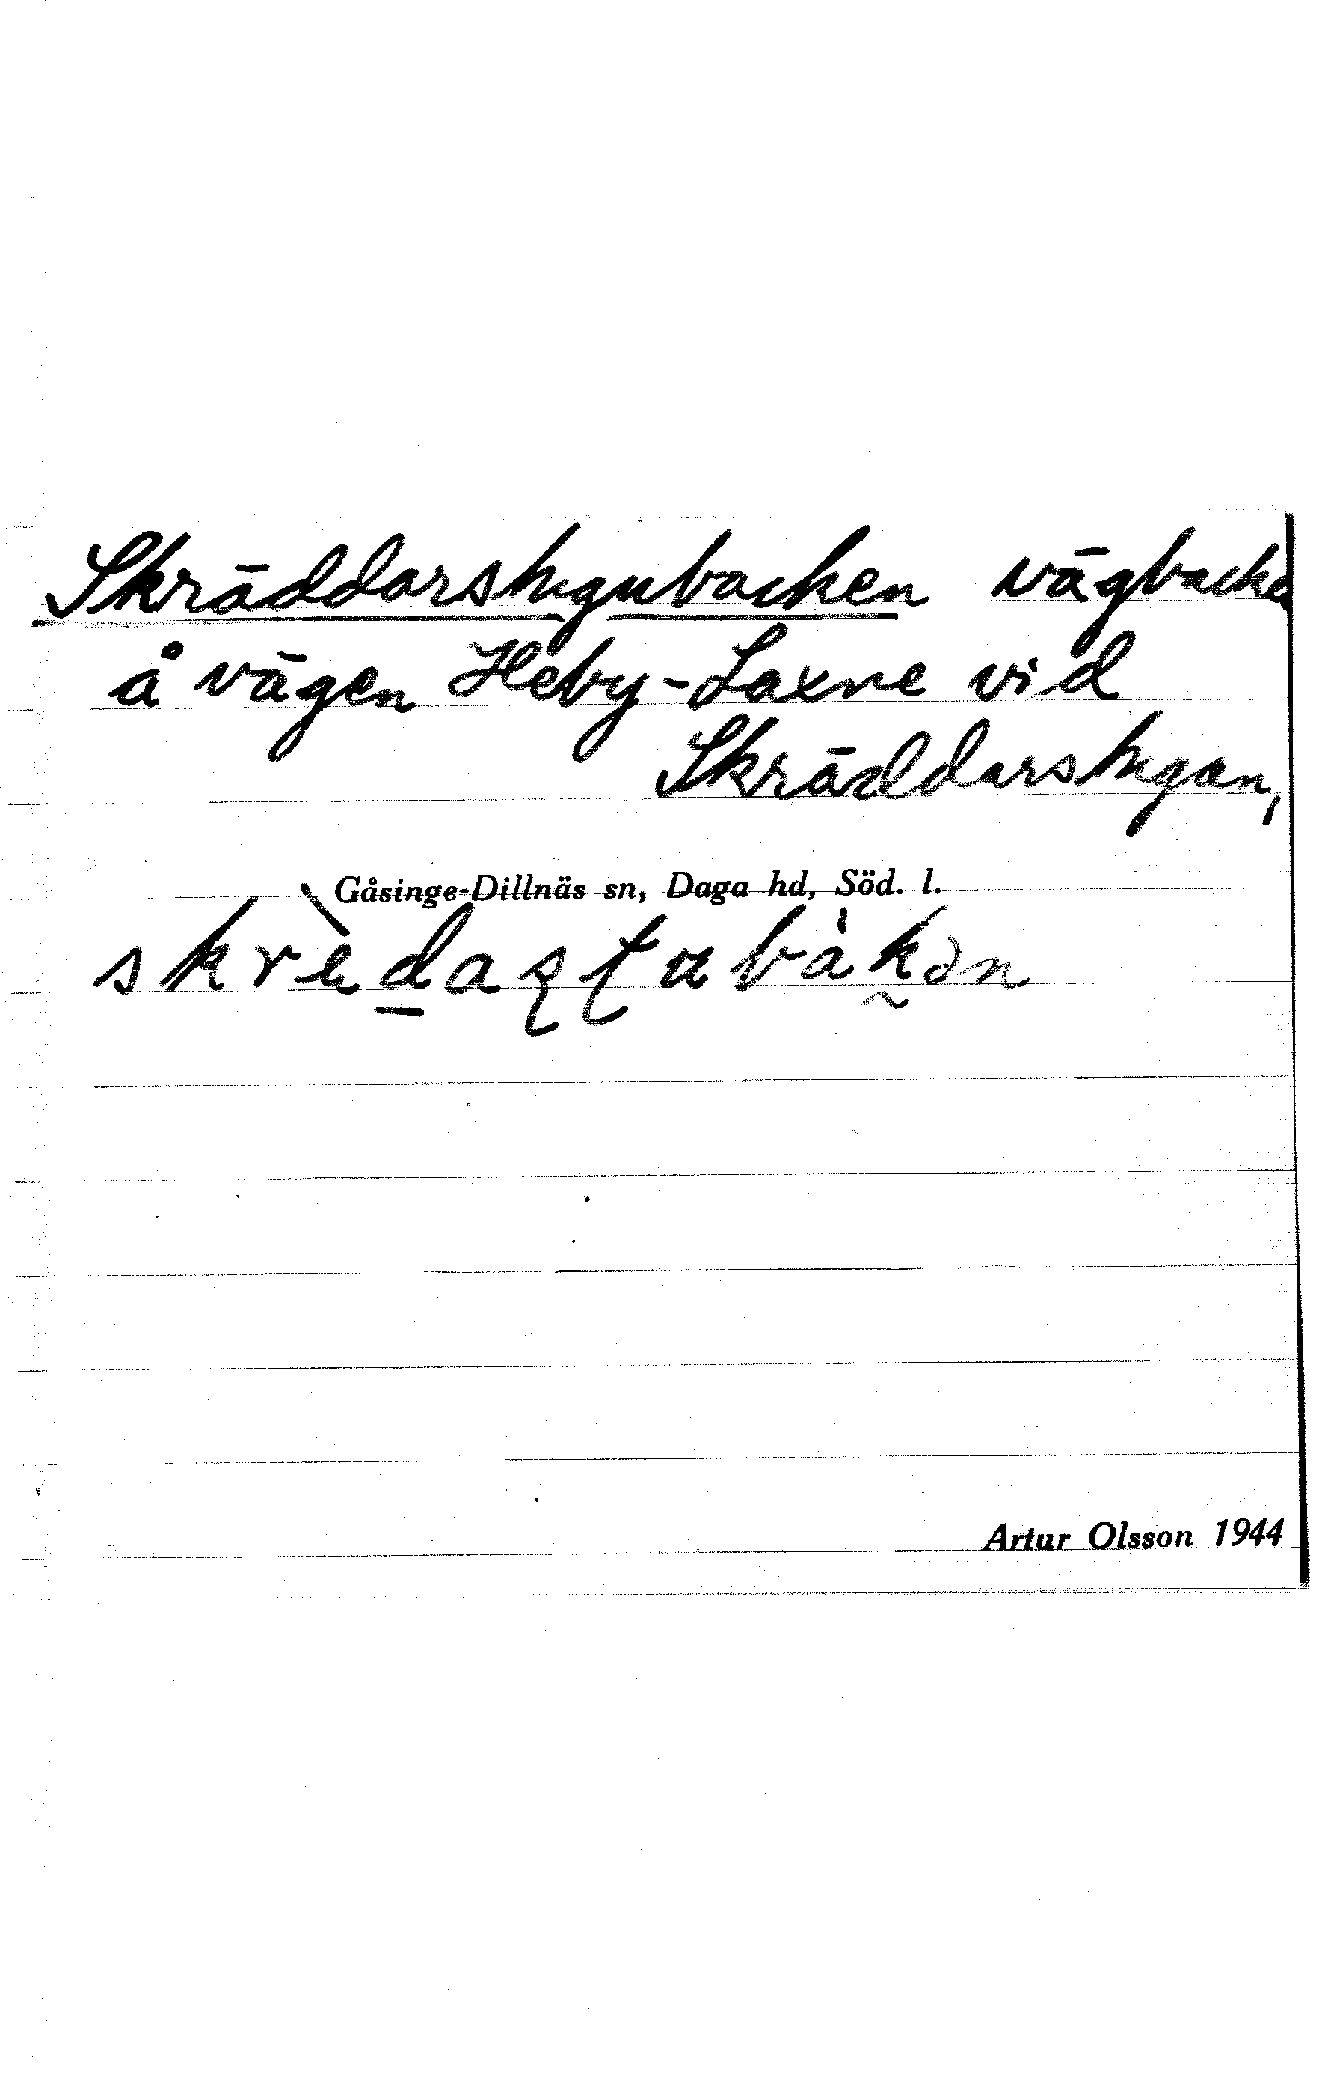 Skräddarstugubacken vägbacke
å vägen Heby-Laxne vid
Skräddarstugan,
Gåsinge-Dillnäs sn, Daga hd, Söd. l.
Artur Olsson 1944